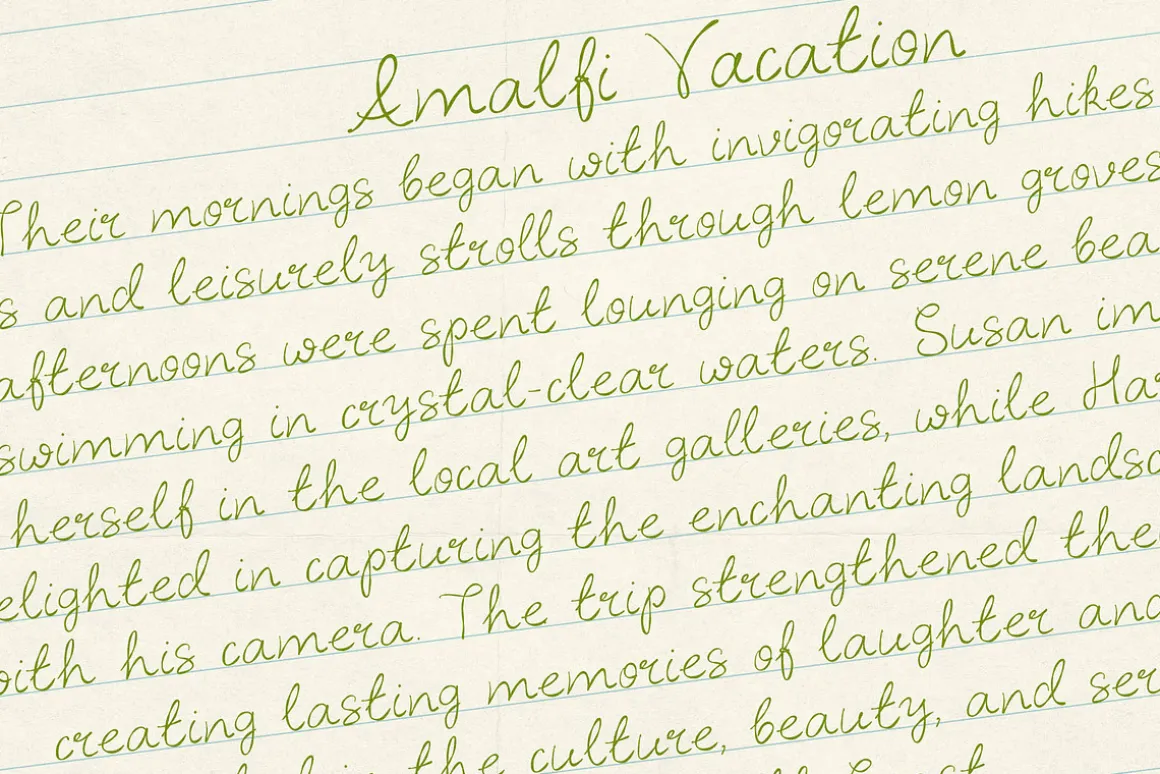 Amalfi Vacation
Their mornings began with invigorating hikes
s and leisurely strolls through lemon groves
afternoons were spent lounging on serene bea
swimming in crystal-clear waters. Susan im
herself in the local art galleries, while Har
elighted in capturing the enchanting landsc
with his camera. The trip strengthened the
creating lasting memories of laughter and
in the culture, beauty, and ser